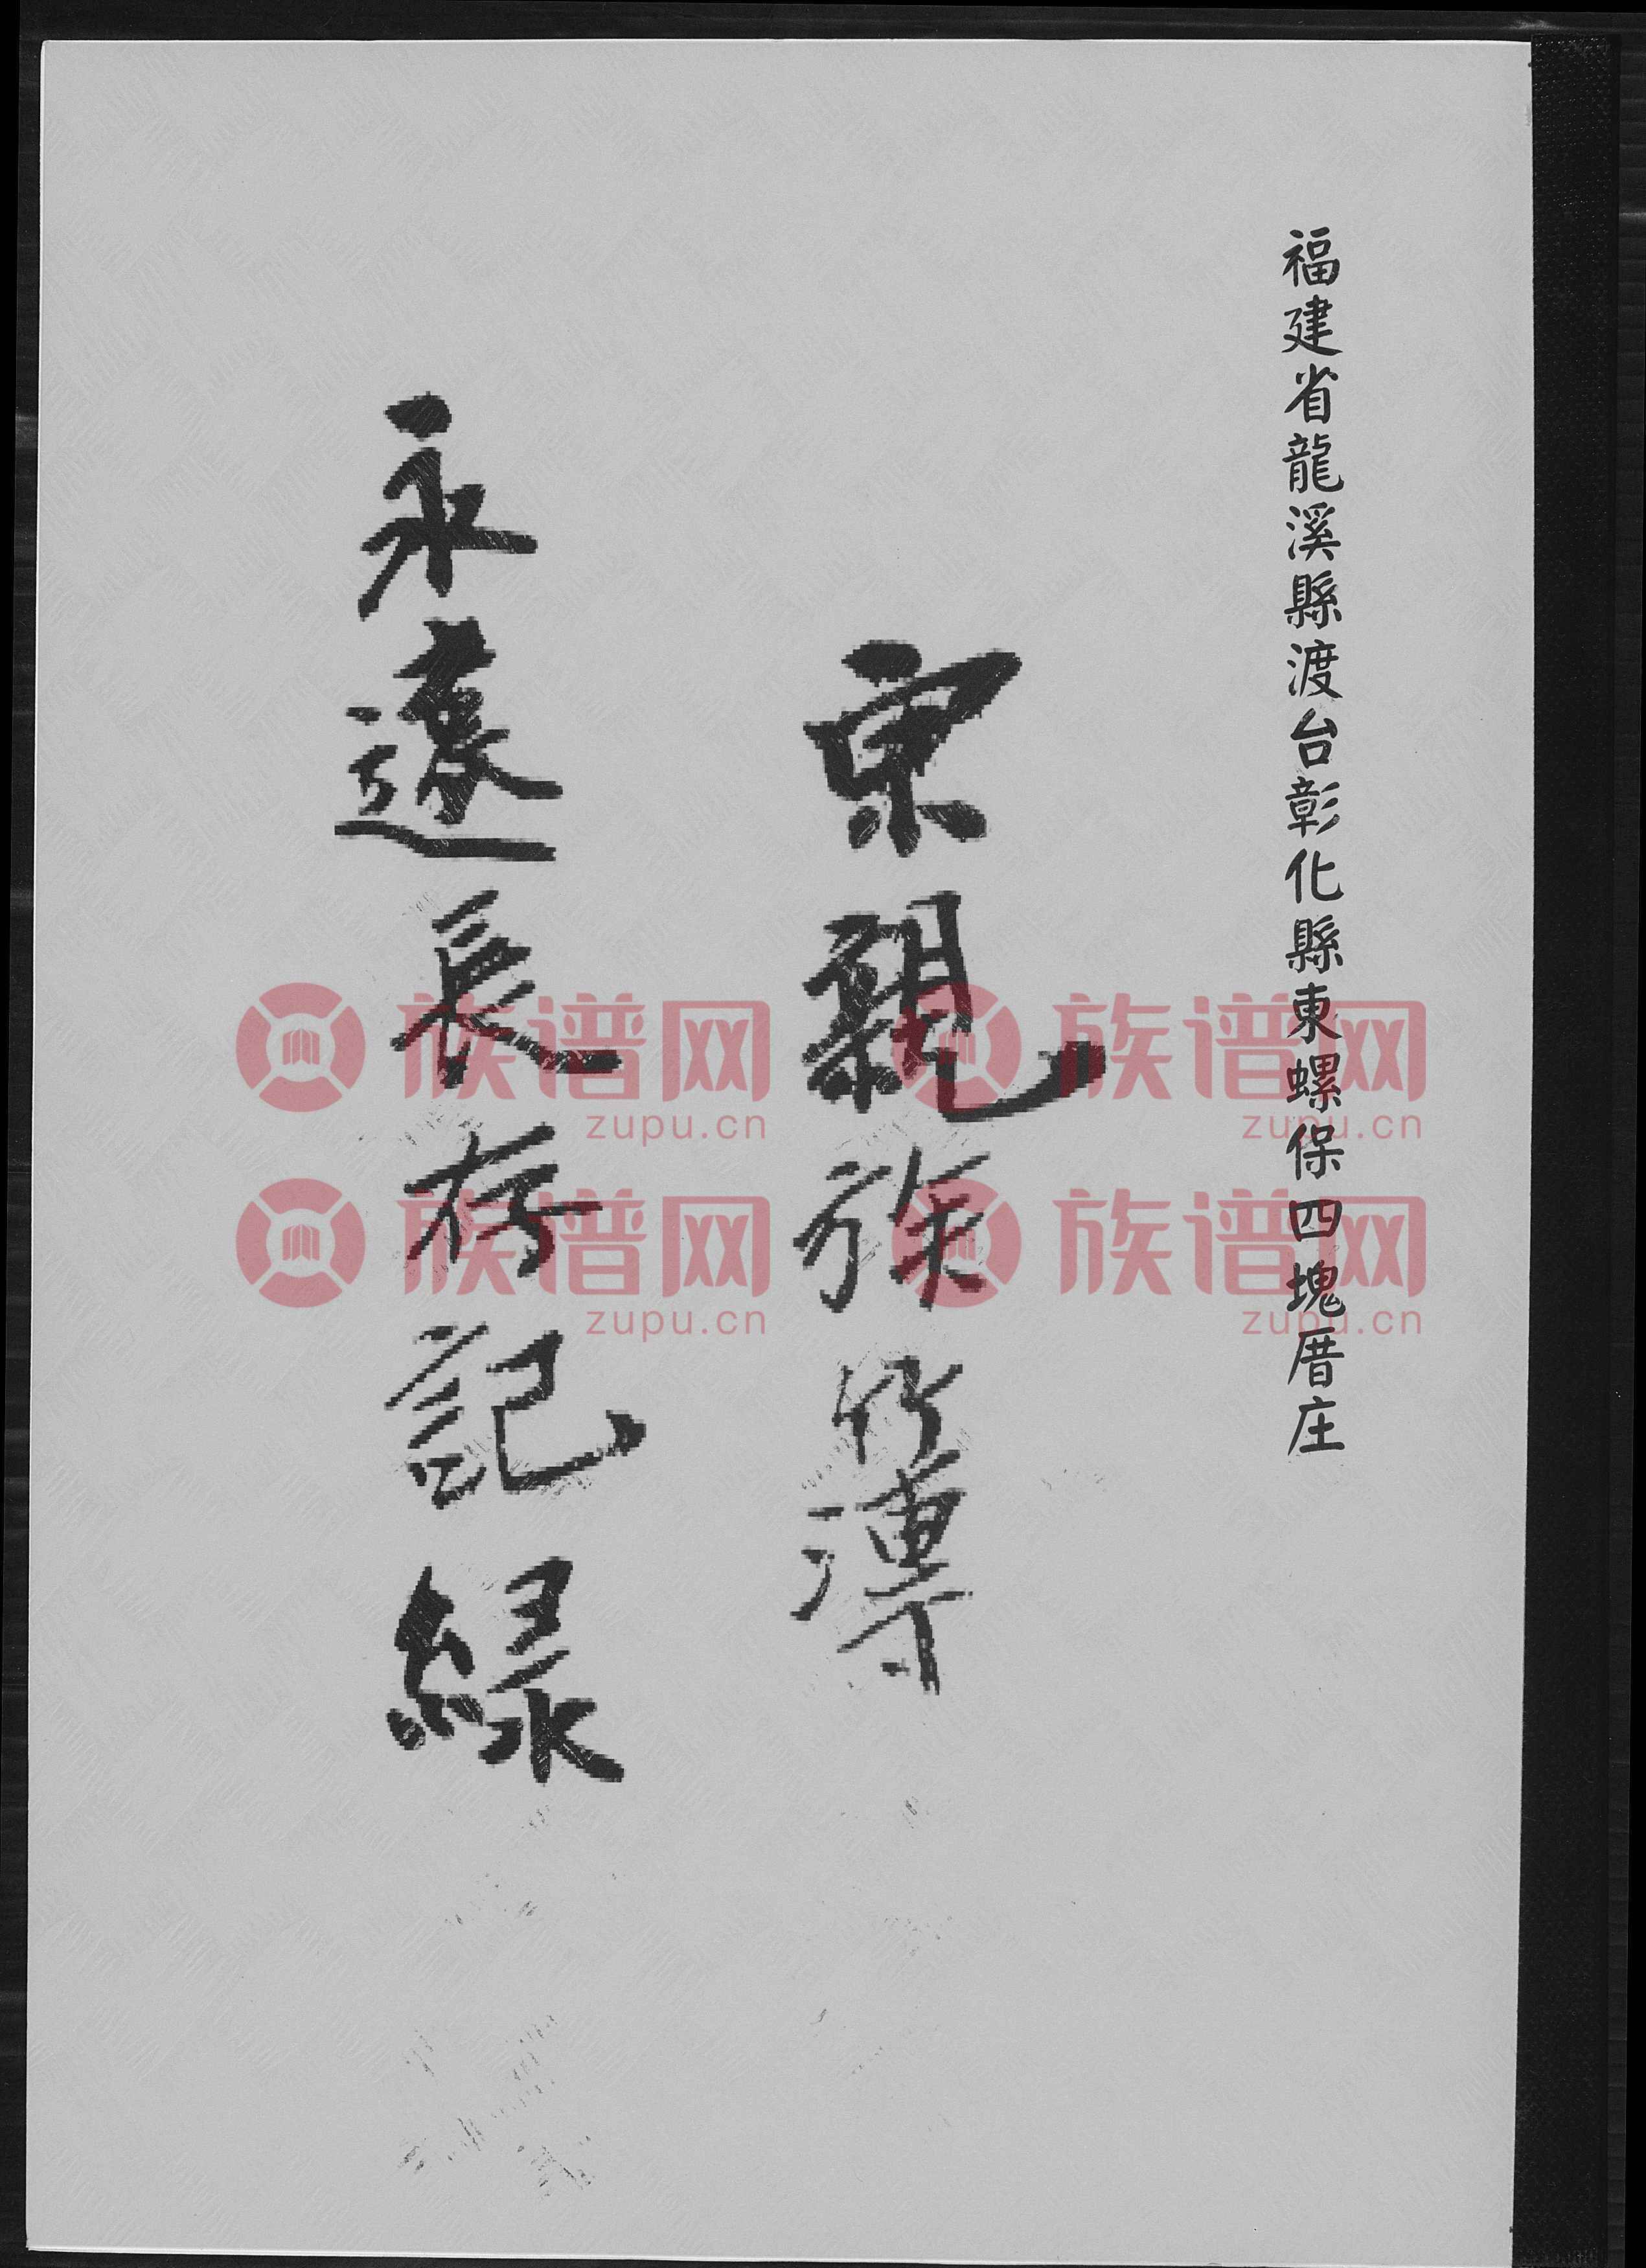 福建省龍溪縣渡台彰化縣東螺保四塊厝庄
宗親族簿
永遠長存記綠
族谱网 族谱网
zupu.cn zupu.cn
族谱网 族谱网
zupu.cn zupu.cn